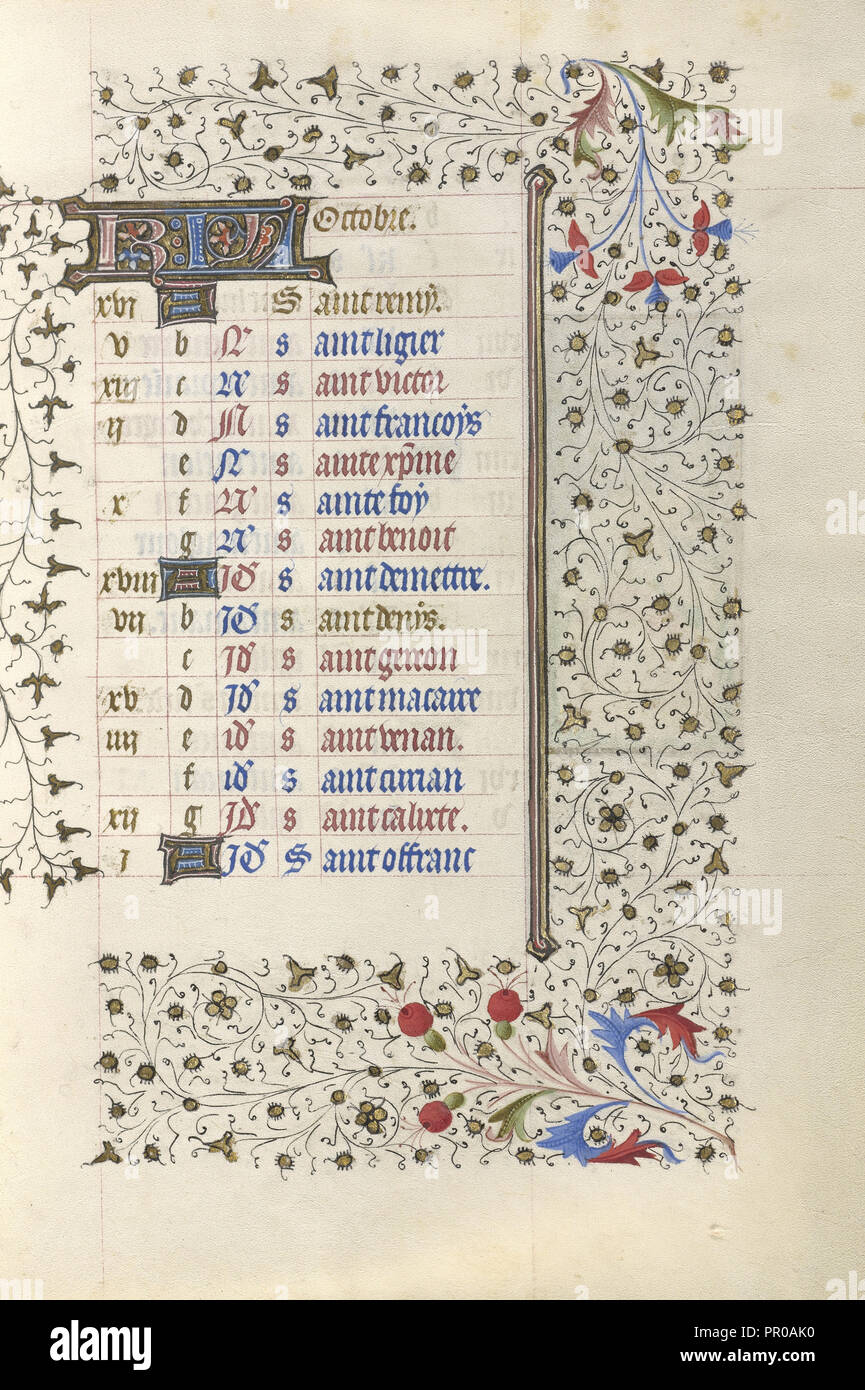 KL Octobre.
xvi A S aint remy.
v b N s aint ligier
xiii c N s aint victor
ii d N s aint francoys
e N s ainte xp̄ine
x f N s ainte foy
g N s aint benoit
xviii A Id s aint demettre.
vii b Id s aint denys.
c Id s aint gereon
xv d Id s aint macaire
iiii e id s aint venan.
f id s aint cirian
xii g Id s aint calixte.
i A Id S aint offranc
alamy
Image ID: PR0AK0
www.alamy.com